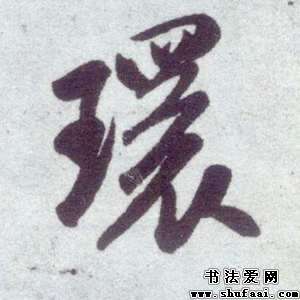 環
书法爱网
www.shufaai.com